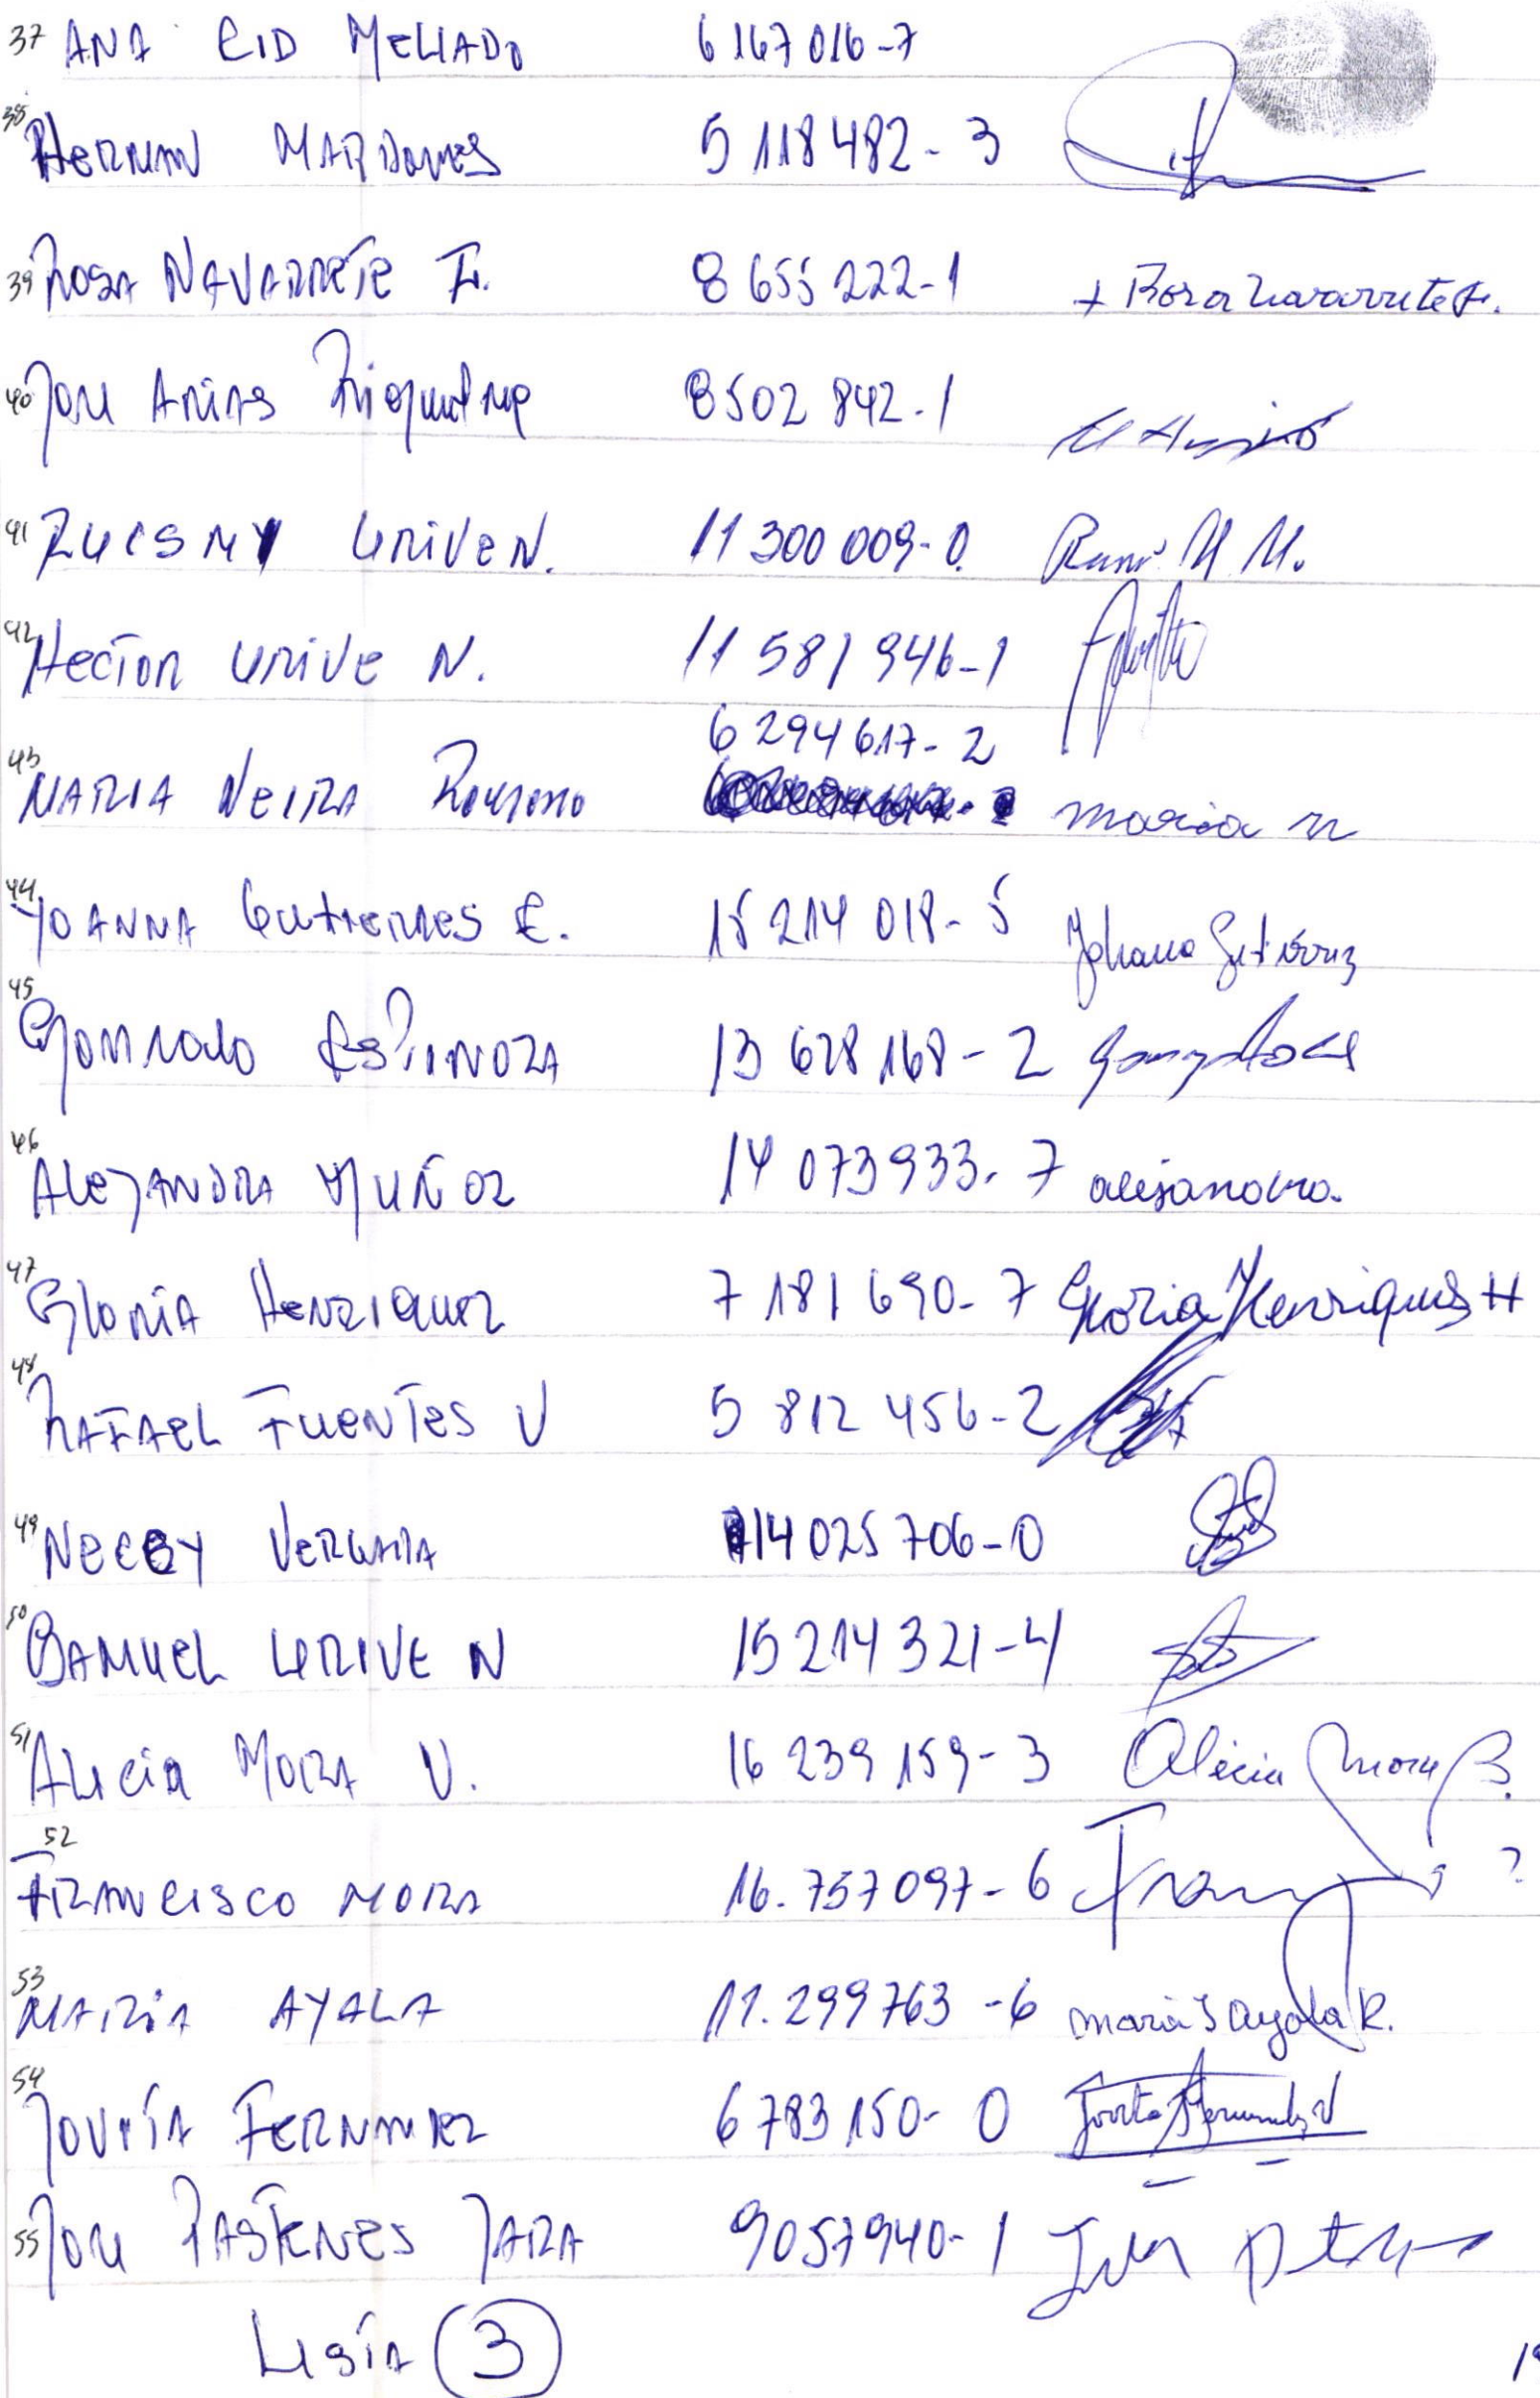 37 ANA CID MELLADO 6167016-7
38 HERNAN MARDONES 5118482-3
39 ROSA NAVARRETE F. 8655222-1 + Rosa Navarrete F.
40 JOSE ARIAS Riquelme 8502842-1
41 ZUISMY URIVE N. 11300009-0.
42 HECTOR URIVE N. 11581946-1
6294617-2
43 MARIA NEIRA maria n
44 YOANNA GUTIERRES E. 15214018-5 Johana Gutiérrez
45 GONZALO ESPINOZA 13628168-2
46 ALEJANDRA MUÑOZ 14073933-7 alejandra.
47 GLORIA HENRIQUEZ 7181690-7 Gloria Henriquez H
48 RAFAEL FUENTES V 5812456-2
49 NECBY VERGARA 14025706-0
50 SAMUEL URIVE N 15214321-4
51 ALICIA MORA V. 16239159-3 Alicia Mora
52 FRANCISCO MORA 16.757097-6 Fran ?
53 MARIA AYALA 11.299763-6 maria I ayala R.
54 JOVITA FERNANDEZ 6783150-0 Jovita Fernandez V
55 JOSE PASTENES JARA 9057940-1
LISTA 3